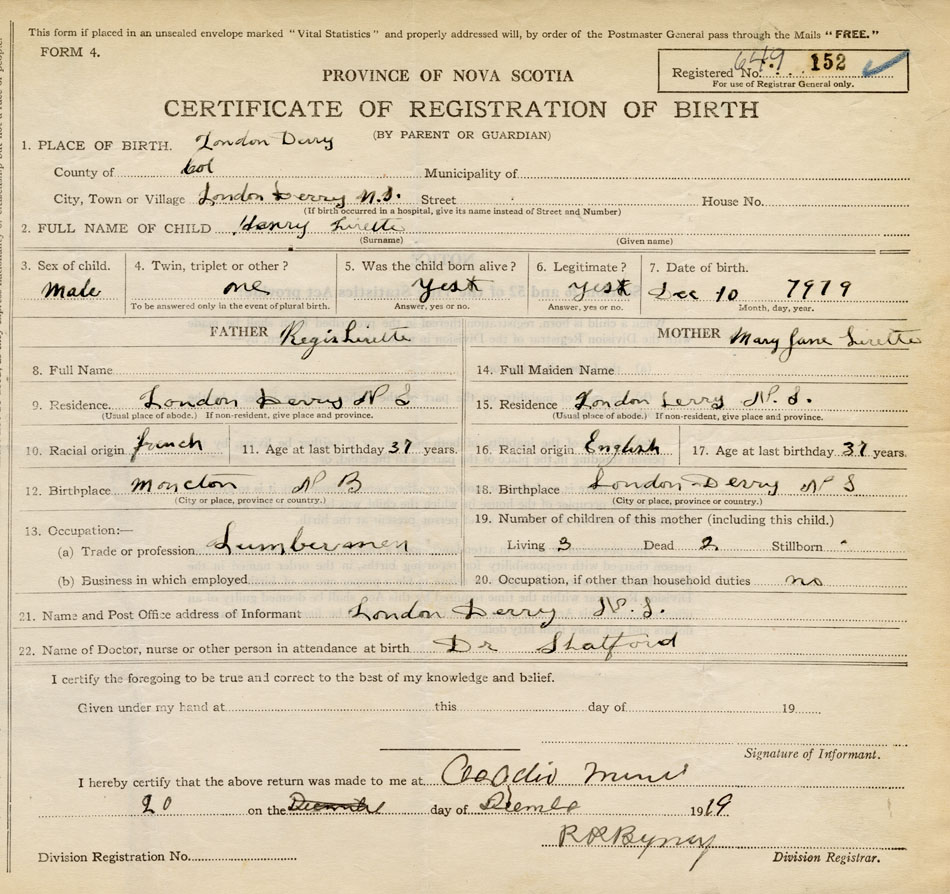 This form if placed in an unsealed envelope marked "Vital Statistics" and properly addressed will, by order of the Postmaster General pass through the Mails "FREE."
FORM 4.
Registered No. 649 152
For use of Registrar General only.
PROVINCE OF NOVA SCOTIA
CERTIFICATE OF REGISTRATION OF BIRTH
(BY PARENT OR GUARDIAN)
1. PLACE OF BIRTH. London Derry
County of Col Municipality of
City, Town or Village London Derry N.S. Street House No.
(If birth occurred in a hospital, give its name instead of Street and Number)
2. FULL NAME OF CHILD Henry Lirette
(Surname) (Given name)
3. Sex of child. 4. Twin, triplet or other? 5. Was the child born alive? 6. Legitimate? 7. Date of birth.
Male one Yes Yes Dec 10 1919
To be answered only in the event of plural birth. Answer, yes or no. Answer, yes or no. Month, day, year.
FATHER Regis Lirette MOTHER Mary Jane Lirette
8. Full Name 14. Full Maiden Name
9. Residence London Derry N S 15. Residence London Derry N. S.
(Usual place of abode.) If non-resident, give place and province. (Usual place of abode.) If non-resident, give place and province.
10. Racial origin french 11. Age at last birthday 37 years. 16. Racial origin English 17. Age at last birthday 37 years.
12. Birthplace Moncton N B 18. Birthplace London Derry N S
(City or place, province or country.) (City or place, province or country.)
13. Occupation:— 19. Number of children of this mother (including this child.)
(a) Trade or profession Lumbermen Living 3 Dead 2 Stillborn
(b) Business in which employed 20. Occupation, if other than household duties no
21. Name and Post Office address of Informant London Derry N. S.
22. Name of Doctor, nurse or other person in attendance at birth Dr Shatford
I certify the foregoing to be true and correct to the best of my knowledge and belief.
Given under my hand at this day of 19
Signature of Informant.
I hereby certify that the above return was made to me at
20 on the day of 1919
Division Registration No. Division Registrar.